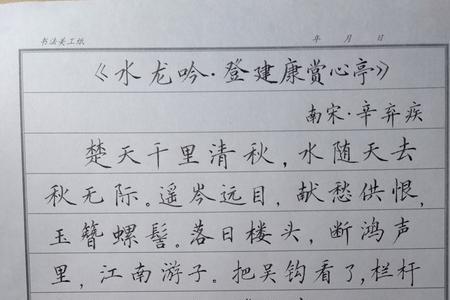 书法美工纸 年 月 日
《水龙吟·登建康赏心亭》
南宋·辛弃疾
楚天千里清秋，水随天去
秋无际。遥岑远目，献愁供恨，
玉簪螺髻。落日楼头，断鸿声
里，江南游子。把吴钩看了，栏杆